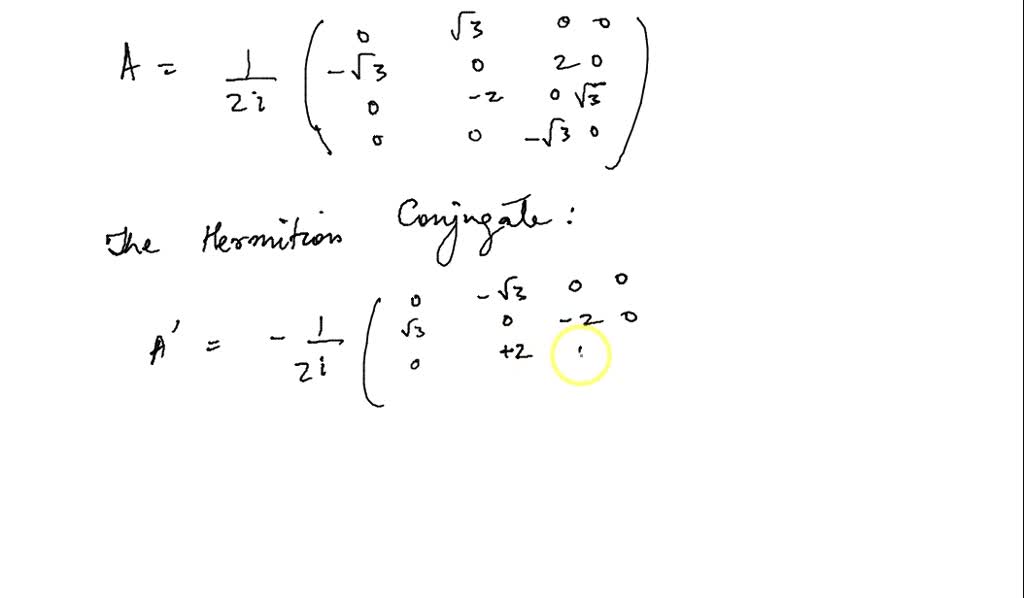 A = 1/2i ( 0 √3 0 0
-√3 0 2 0
0 -2 0 √3
0 0 -√3 0 )
The Hermition Conjugate :
A' = - 1/2i ( 0 -√3 0 0
√3 0 -2 0
0 +2